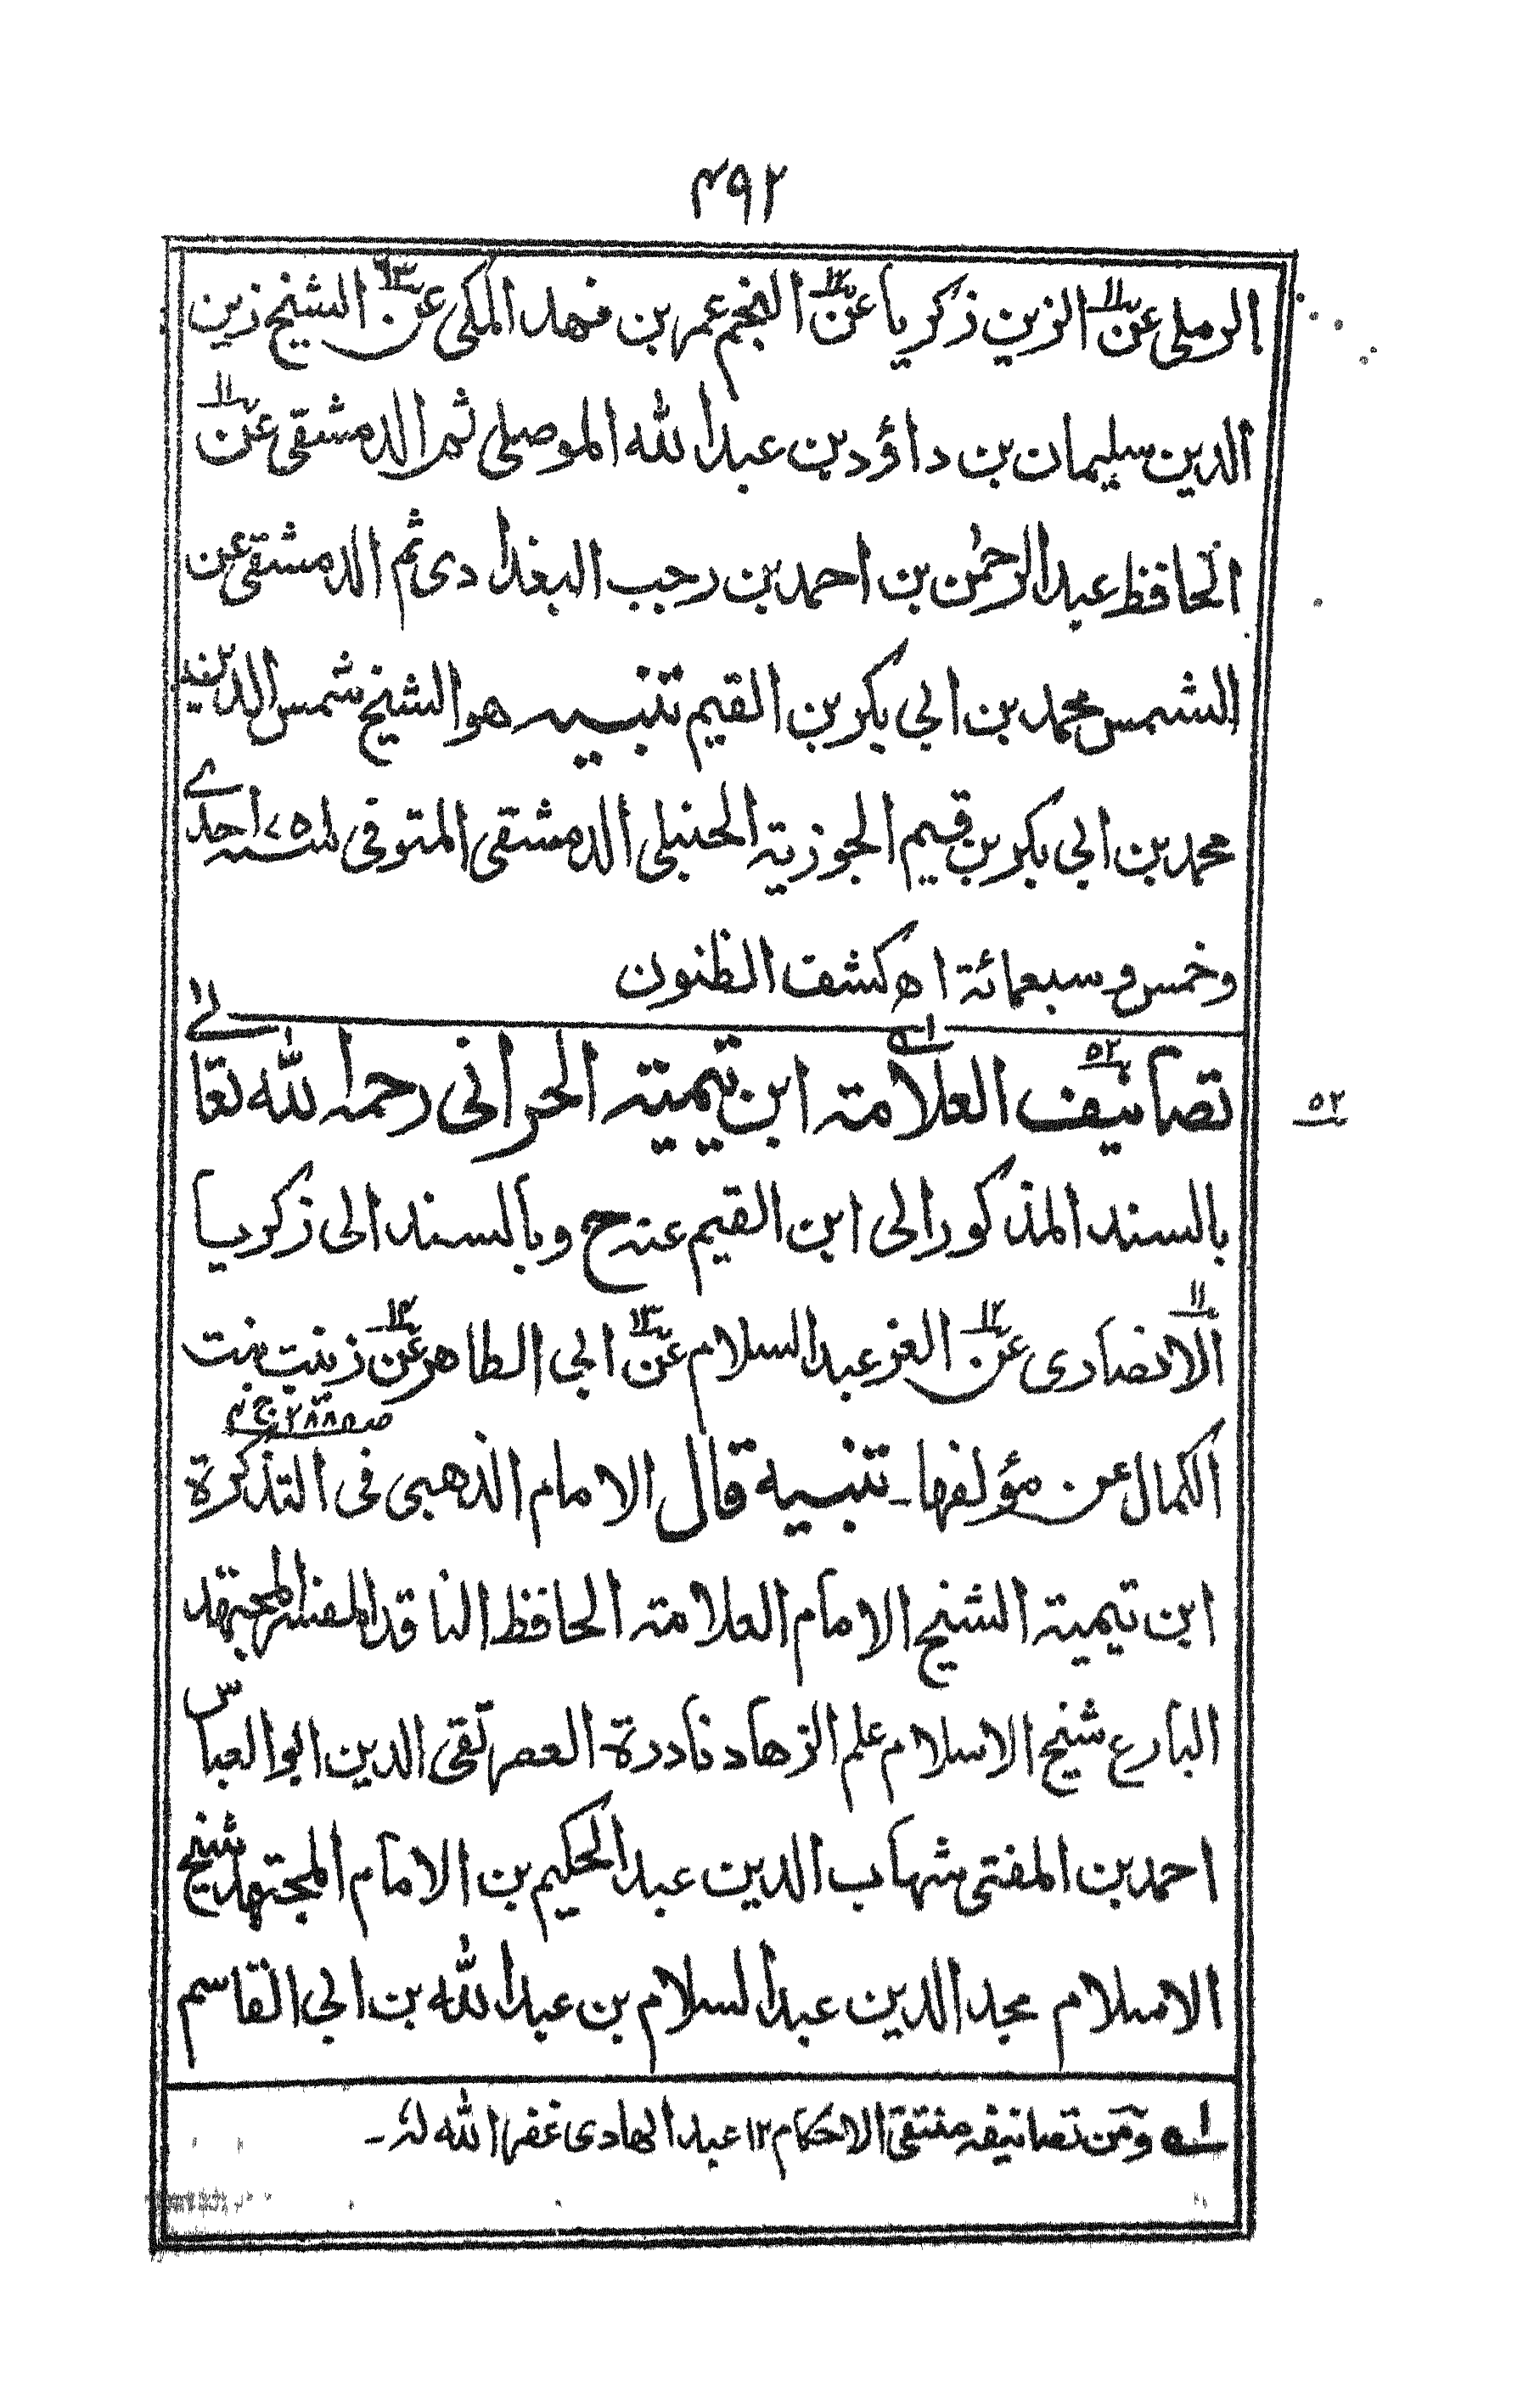 ۴۹۲
الرملی عن الزین زکریا عن النجم عمر بن فهد المکی عن الشیخ زین
۱۱ ۱۲ ۱۳
الدین سلیمان بن داؤد بن عبد الله الموصلی ثم الدمشقی عن
الحافظ عبد الرحمٰن بن احمد بن رجب البغدادی ثم الدمشقی عن
الشمس محمد بن ابی بکر بن القیم تنبیه هو الشیخ شمس الدین
محمد بن ابی بکر بن قیم الجوزیة الحنبلی الدمشقی المتوفی سنه ۷۵۱ احدی
وخمس و سبعمائة اھ کشف الظنون
تصانیف العلامة ابن تیمیة الحرانی رحمه الله تعالیٰ
۵۲ ۱ ۵۲
بالسند المذکور الی ابن القیم عنه ح وبالسند الی زکریا
الانصاری عن العز عبد السلام عن ابی الطاهر عن زینب بنت
۱۱ ۱۲ ۱۳ ۱۴
الکمال عن مؤلفها۔ تنبیه قال الامام الذهبی فی التذکرة
صـ ۲۸۸ ج ۴
ابن تیمیة الشیخ الامام العلامة الحافظ الناقد المفسر المجتهد
البارع شیخ الاسلام علم الزهاد نادرة العصر تقی الدین ابو العباس
احمد بن المفتی شهاب الدین عبد الحکیم بن الامام المجتهد شیخ
الاسلام مجد الدین عبد السلام بن عبد الله بن ابی القاسم
۱ ومن تصانیفه منتقی الاحکام ۱۲ عبد الهادی غفر الله له۔